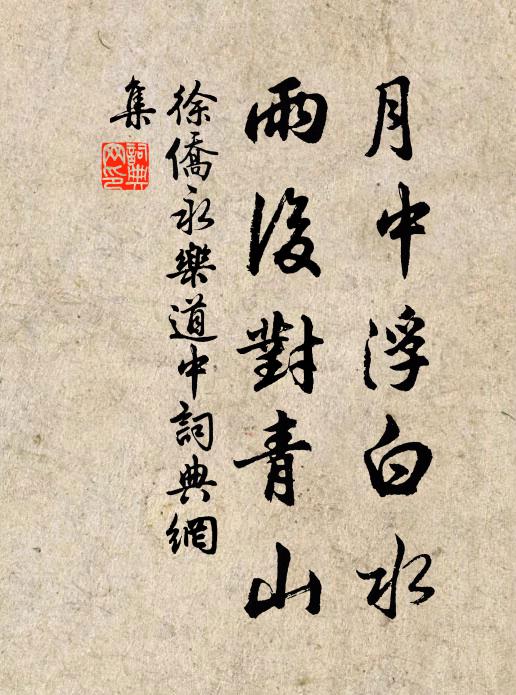 月中浮白水
雨後對青山
徐僑永樂道中詞典網
集
詞典
网印